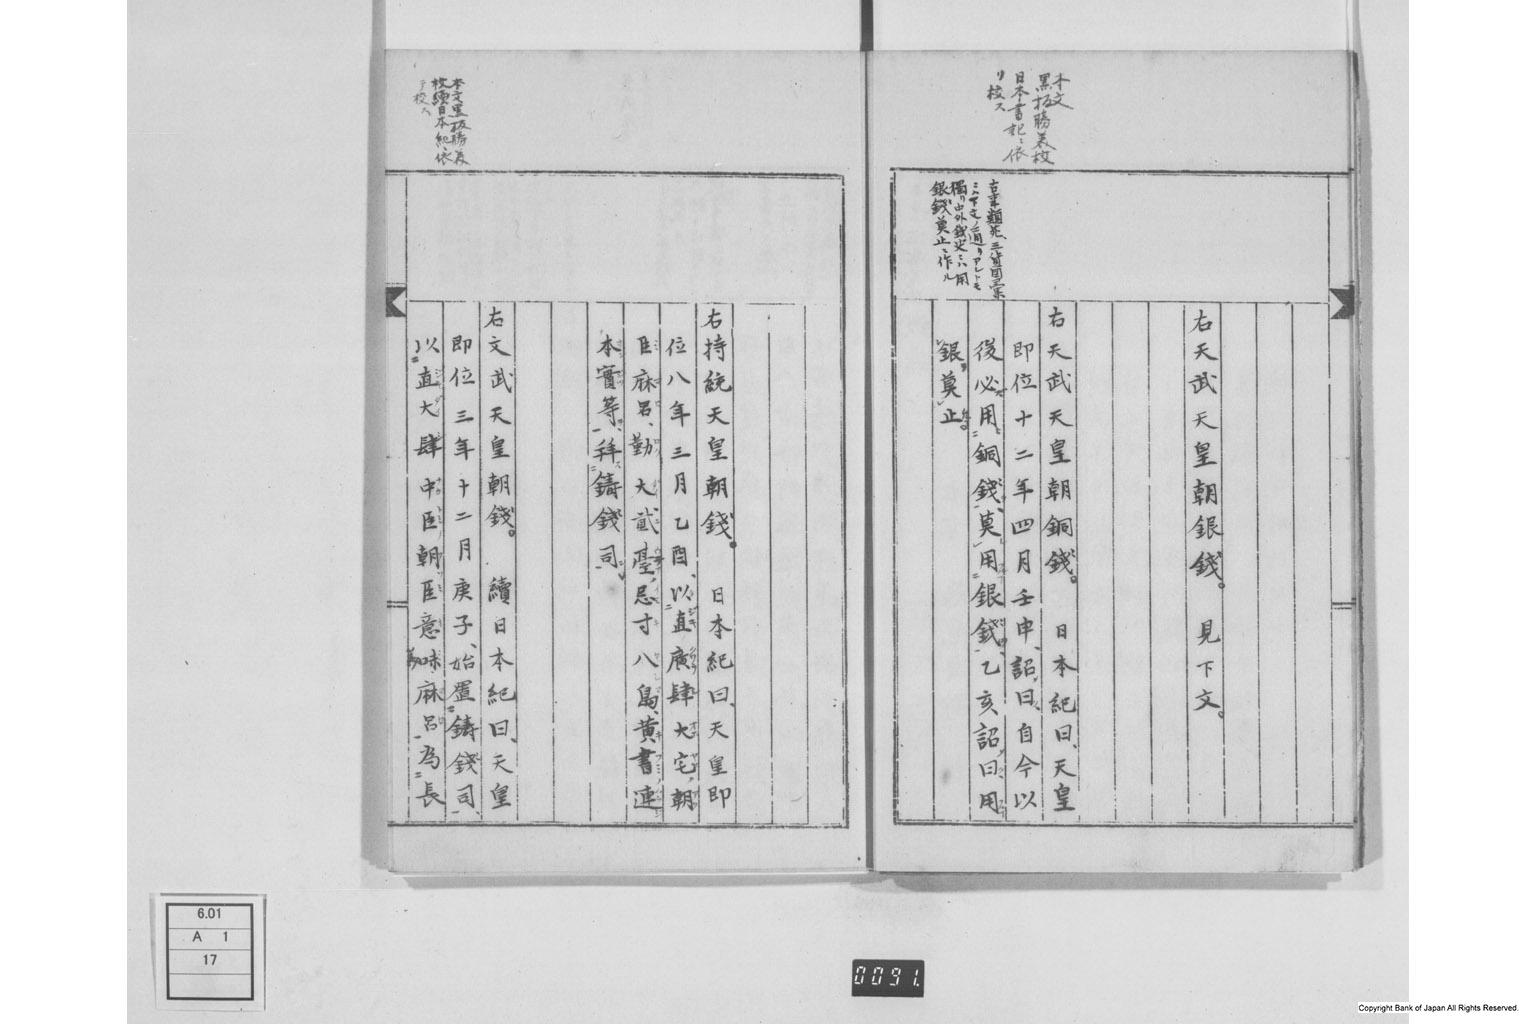 本文
黒板勝美校
日本書紀ニ依
リ校ス
古事類苑、三貨図彙
ニハ下文ノ通リアレトモ
獨リ中外銭史ニハ用
銀錢莫止ニ作ル
右天武天皇朝銀錢。　見下文。
右天武天皇朝銅錢。　日本紀曰、天皇
即位十二年四月壬申、詔曰、自今以
後必用銅錢、莫用銀錢、乙亥詔曰、用
銀莫止。
本文黒板勝美
校續日本紀ニ依
テ校ス
右持統天皇朝錢。　日本紀曰、天皇即
位八年三月乙酉、以直廣肆大宅朝
臣麻呂、勤大貳臺忌寸八島、黃書連
本實等、拜鑄錢司、
右文武天皇朝錢。　續日本紀曰、天皇
即位三年十二月庚子、始置鑄錢司、
以直大肆中臣朝臣意味麻呂、為長
6.01
A 1
17
0091.
Copyright Bank of Japan All Rights Reserved.